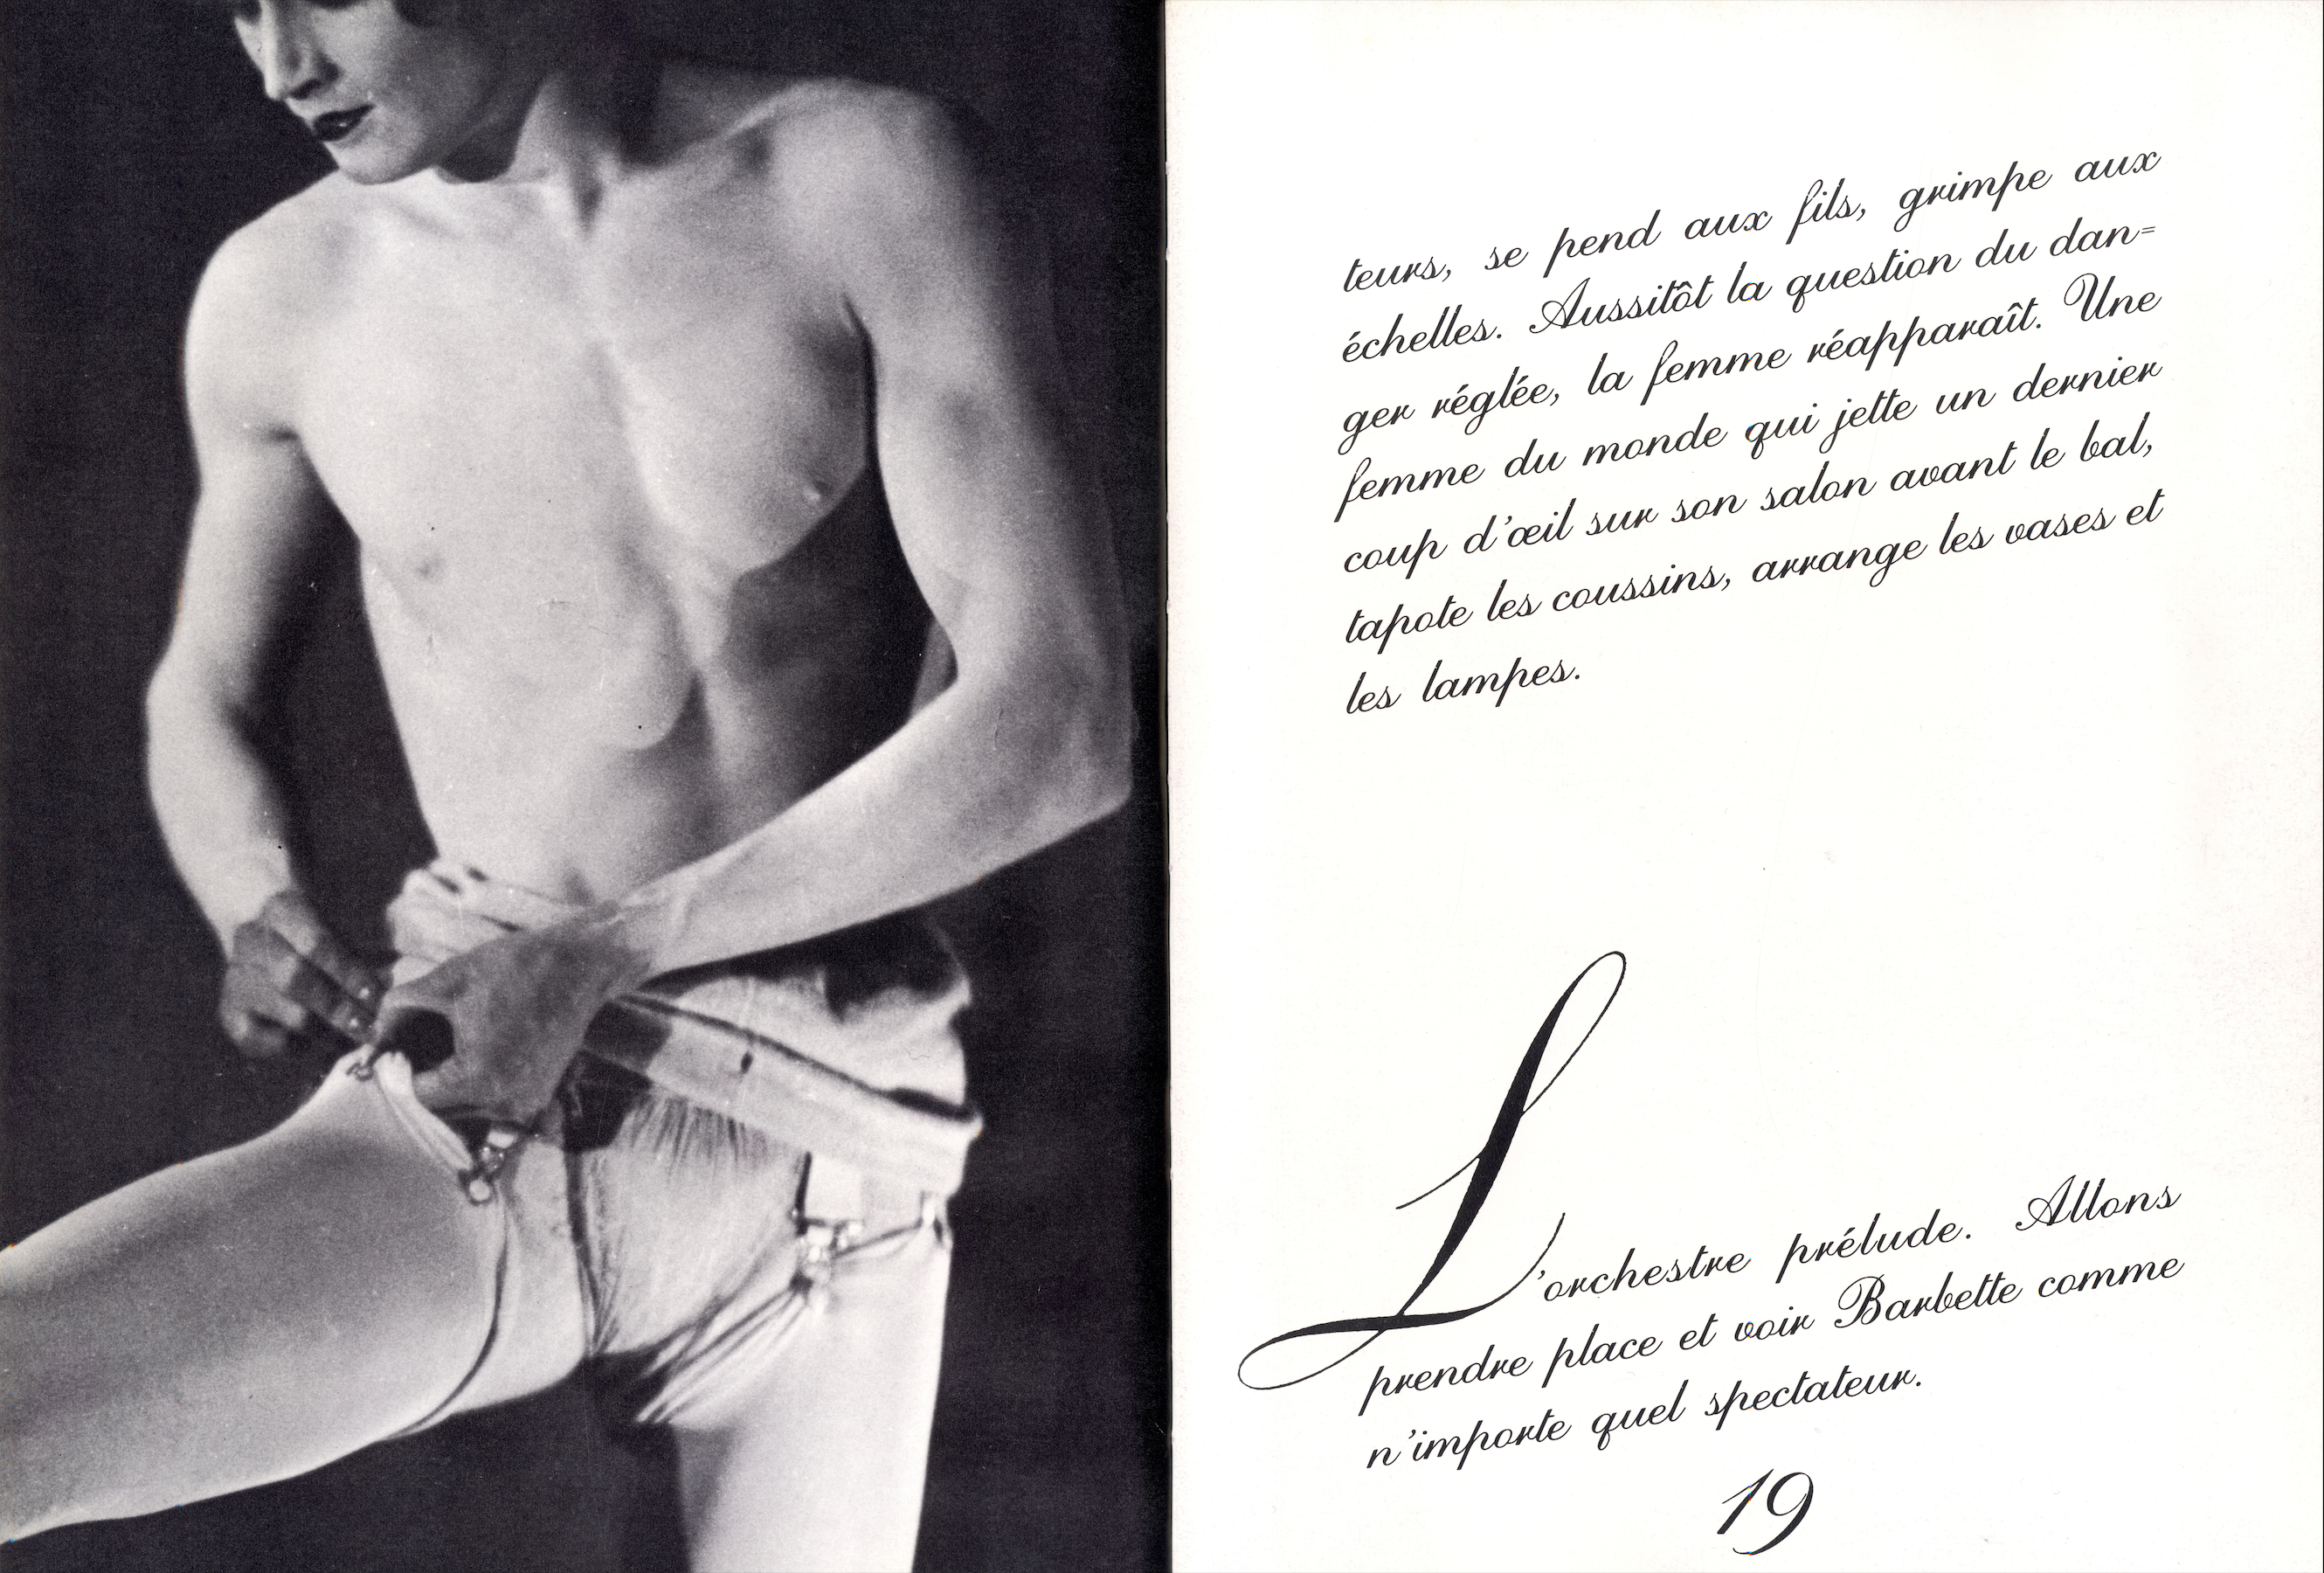 teurs, se pend aux fils, grimpe aux
échelles. Aussitôt la question du dan=
ger réglée, la femme réapparaît. Une
femme du monde qui jette un dernier
coup d'œil sur son salon avant le bal,
tapote les coussins, arrange les vases et
les lampes.
L'orchestre prélude. Allons
prendre place et voir Barbette comme
n'importe quel spectateur.
19